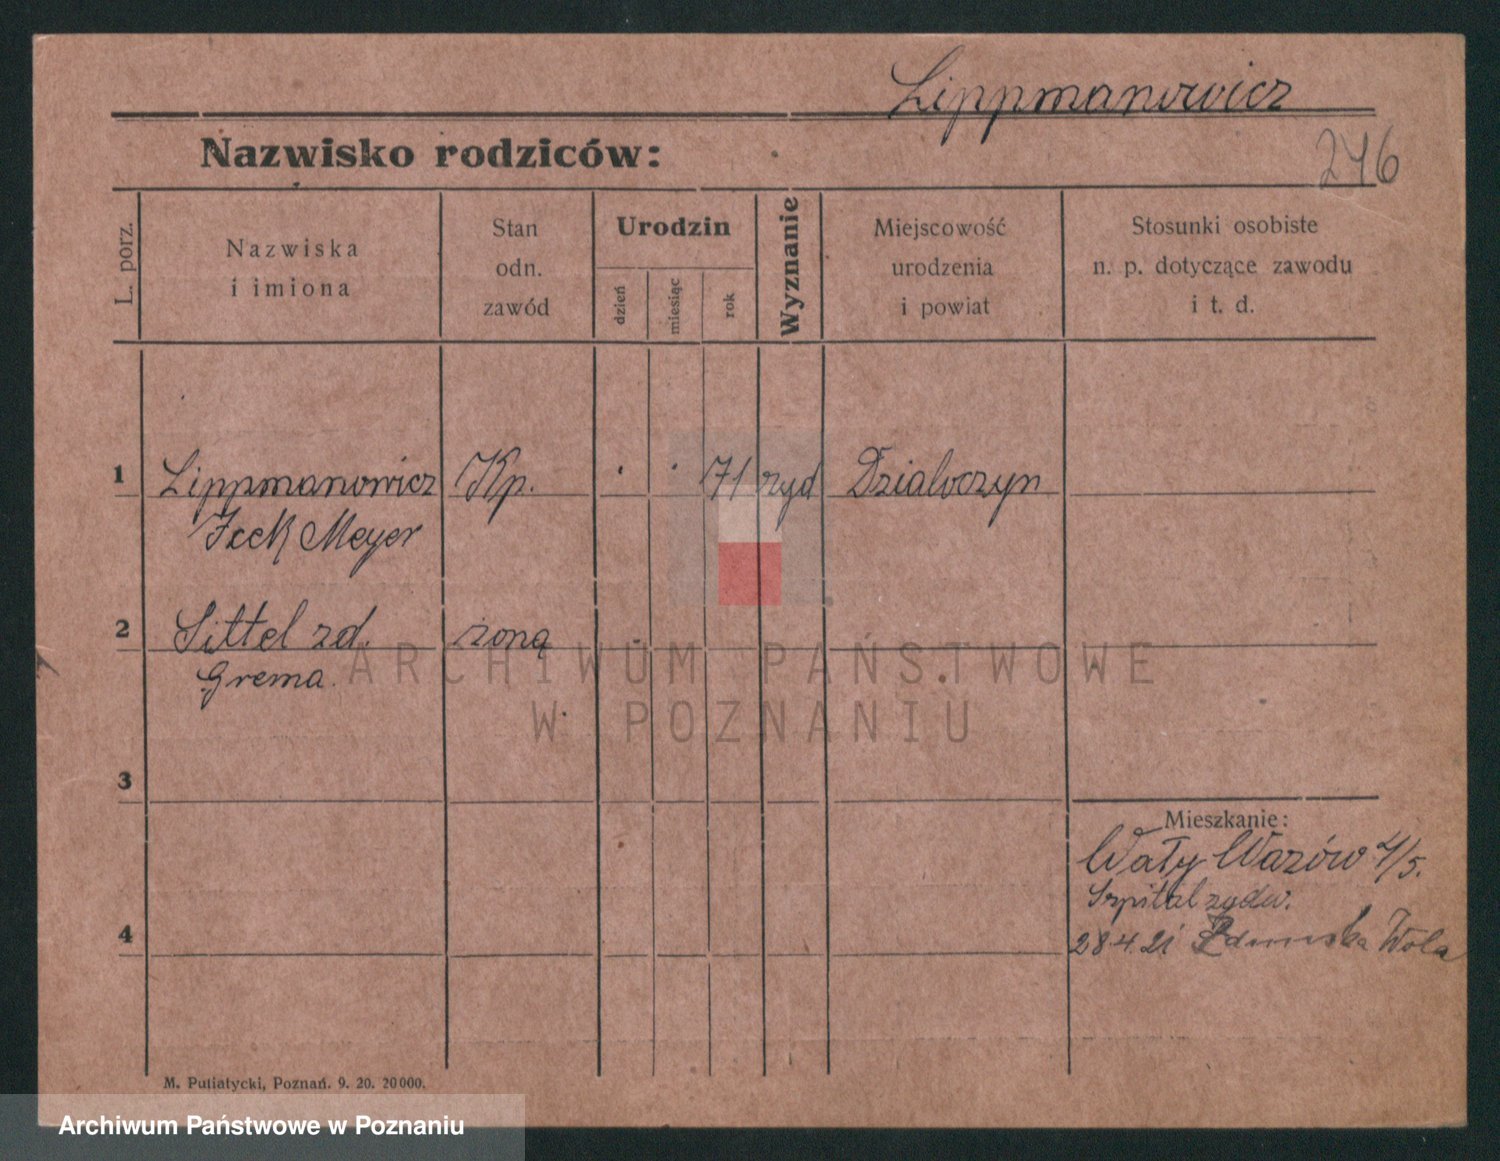 Lippmanowicz
Nazwisko rodziców:
246
L. porz.
Nazwiska
i imiona
Stan
odn.
zawód
Urodzin
dzień
miesiąc
rok
Wyznanie
Miejscowość
urodzenia
i powiat
Stosunki osobiste
n. p. dotyczące zawodu
i t. d.
1 Lippmanowicz Kp. 71 żyd Dzialoczyn
Icek Meyer
2 Sittel zd. żoną
Grema
ARCHIWUM PAŃSTWOWE
W POZNANIU
3
Mieszkanie:
Wały Wazów 4/5.
Szpital żydw.
4
28.4.21 Zdunska Wola
M. Putiatycki, Poznań. 9. 20. 20 000.
Archiwum Państwowe w Poznaniu